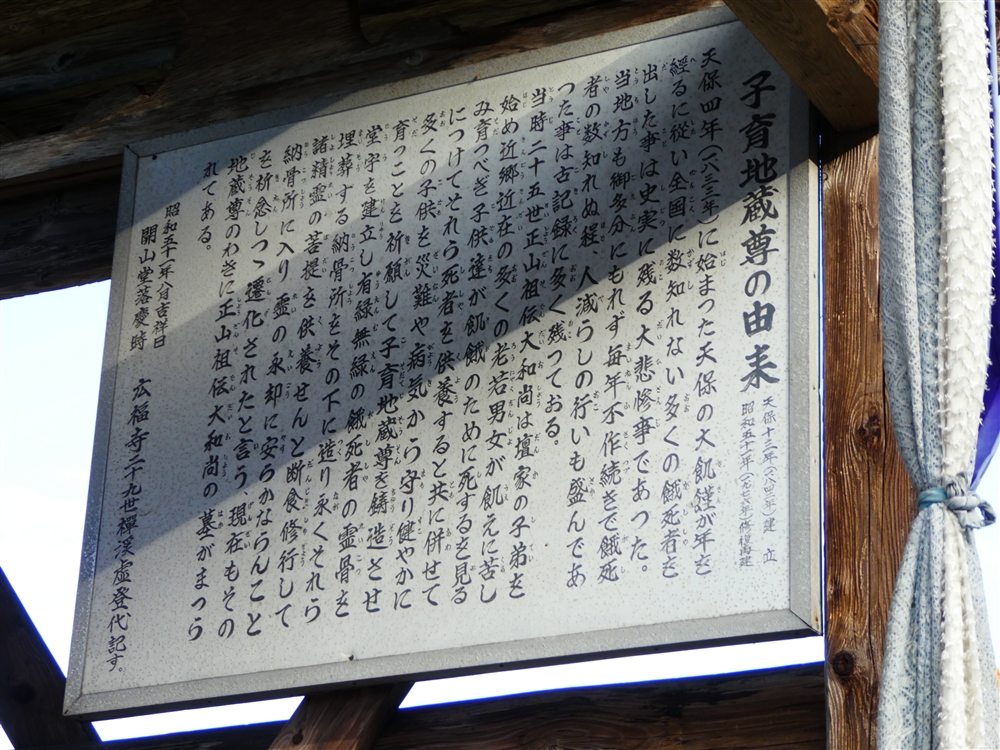 子育地蔵尊の由来
天保十三年(一八四二年)建立
昭和五十一年(一九七六年)修復再建
天保四年(一八三三年)に始まった天保の大飢饉が年を
經るに従い全国に数知れない多くの餓死者を
出した事は史実に残る大悲惨事であった。
当地方も御多分にもれず毎年不作続きで餓死
者の数知れぬ程、人減らしの行いも盛んであ
った事は古記録に多く残っておる。
当時二十五世正山祖伝大和尚は壇家の子弟を
始め近郷近在の多くの老若男女が飢えに苦し
み育つべき子供達が飢餓のために死するを見る
につけてそれら死者を供養すると共に併せて
多くの子供を災難や病気から守り健やかに
育つことを祈願して子育地蔵尊を鋳造させ
堂宇を建立し有緑無緑の餓死者の霊骨を
埋葬する納骨所をその下に造り永くそれら
諸精霊の菩提を供養せんと断食修行して
納骨所に入り霊の永却に安らかならんこと
を祈念しつゝ遷化されたと言う、現在もその
地蔵尊のわきに正山祖伝大和尚の墓がまつら
れてある。
昭和五十一年八月吉祥日
開山堂落慶時　広福寺二十九世禅渓虚登代記す。